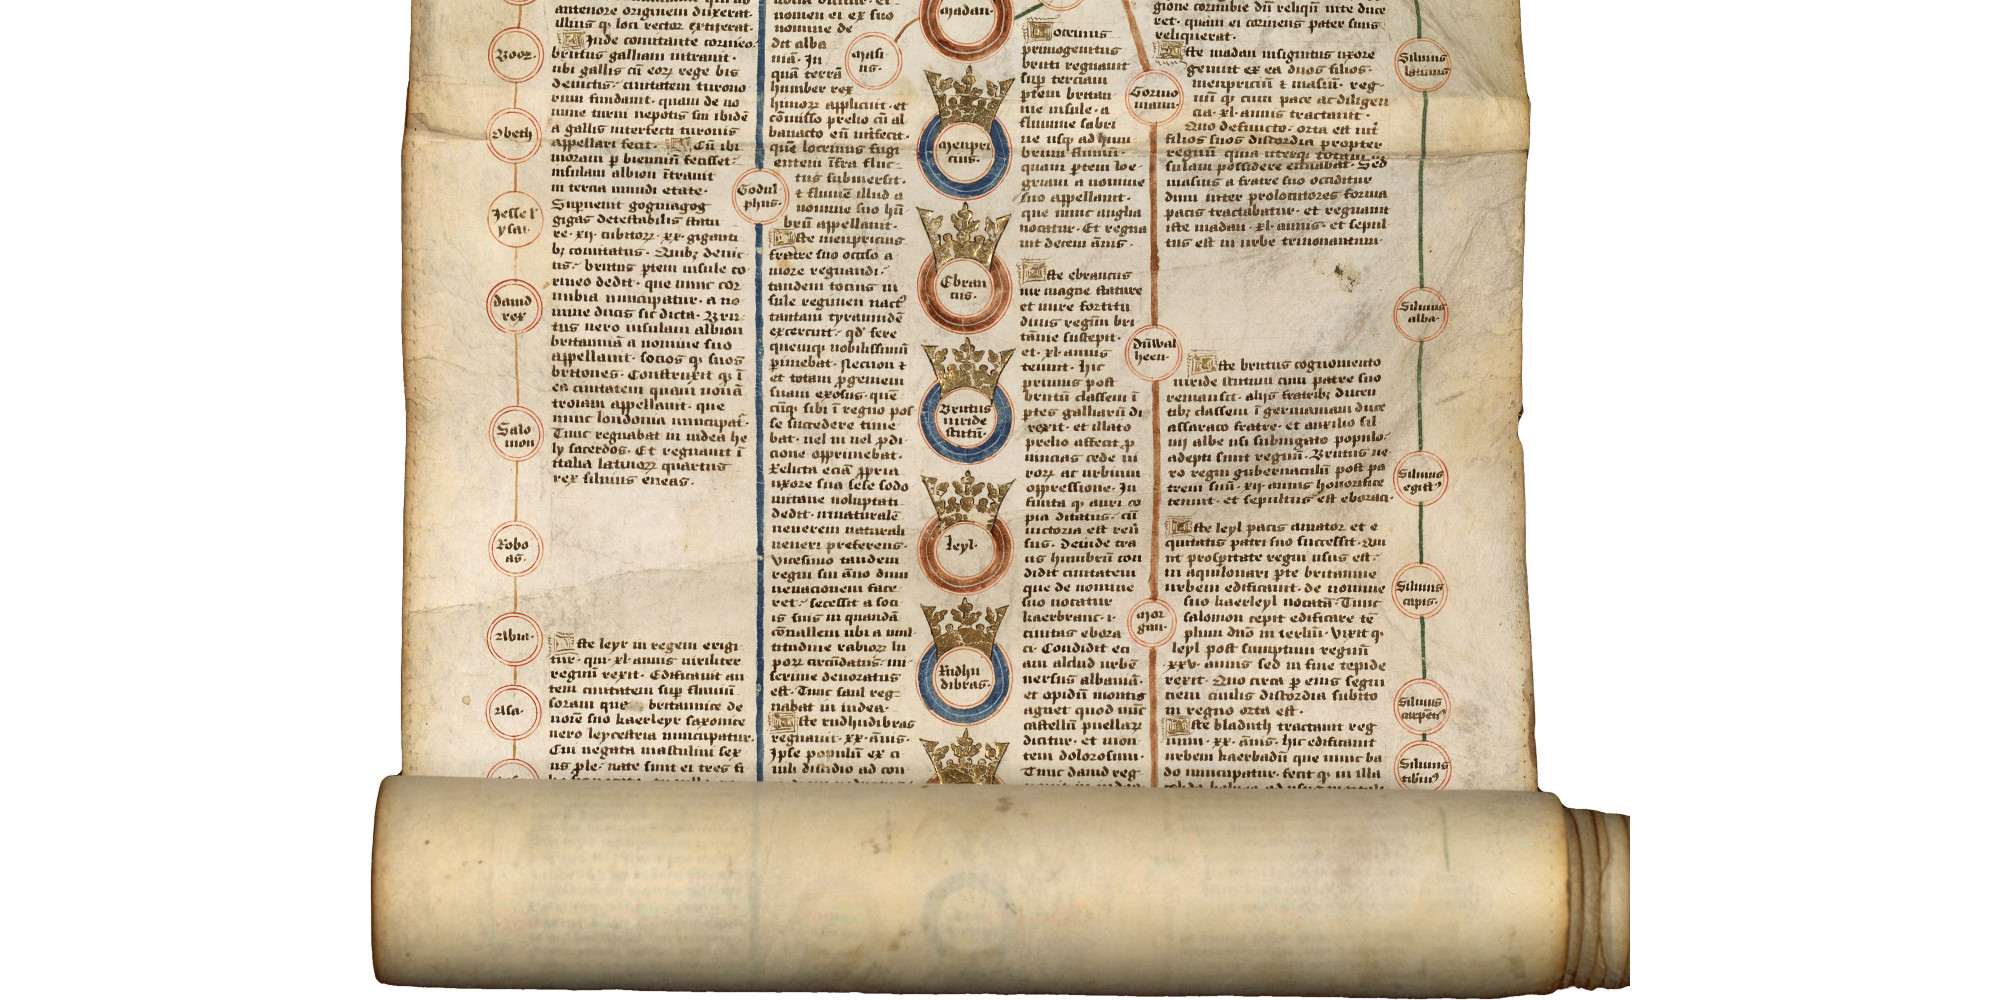 Booz.
Obeth
Jesse
ysai.
david
rex
Salo
mon
Robo
as.
Abia.
Asa.
antenore originem duxerat.
Inde comitante corineo.
brutus galliam intravit.
ubi gallis cū eorꝝ rege bis
devictis. civitatem turono
rum fundavit. quam de no
mine turni nepotis sui ibidē
a gallis interfecti turonis
appellari fecit. Cū ibi
moram ꝑ bienniū fecisset.
insulam albion ītravit
in tercia mundi etate.
Supvenit gogmagog
gigas detestabilis statu
re. xij. cubitorꝝ. xx. giganti
bꝫ comitatus. Quibꝫ devic
tis. brutus ptem insule co
rineo dedit. que nunc cor
nubia nuncupatur. a no
mine ducis sic dicta. Bru
tus vero insulam albion
britanniā a nomine suo
appellavit. socios qꝫ suos
britones. Construxit qꝫ ī
ea civitatem quam novā
troiam appellavit. que
nunc londonia nuncupat̄.
Tunc regnabat in iudea he
ly sacerdos. Et regnavit ī
italia latinorꝝ quartus
rex silvius eneas.
Iste leyr in regem erigi
tur. qui. xl. annis viriliter
regnū rexit. Edificavit au
tem civitatem sup fluviū
soram que britannice de
noīe suo kaerleyr saxonice
vero leycestria nuncupatur.
Cui negata masculini sex
us ple. nate sunt ei tres fi
Godul
phus.
nomen ei ex suo
nomine de
dit alba
niā. In
quā terrā
humber rex
hunorꝝ applicuit. et
cōmisso prelio cū al
banacto eū int̄fecit.
quē locrinus fugi
entem īfra fluc
tus submersit.
et fluviū illud a
nomine suo hū
brū appellavit.
Iste menpricius
fratre suo occiso a
more regnandi.
tandem tocius in
sule regimen nact9
tantam tyrannidē
exercuit. qd' fere
quemqꝫ nobilissimū
pimebat. Necnon et
et totam ꝓgeniem
suam exosus. quē
cūqꝫ sibi ī regno pos
se succedere time
bat. vel vi vel ꝓdi
cione opprimebat.
Relicta eciā ꝓpria
uxore sua sese sodo
mitane voluptati
dedit. innaturalē
venerem naturali
veneri preferens.
Vicesimo tandem
regni sui āno dum
venacionem face
ret. secessit a soci
is suis in quandā
cōvallem ubi a mul
titudine rabiorꝝ lu
porꝝ circūdatus. mi
serime devoratus
est. Tunc saul reg
nabat in iudea.
Iste rudhudibras
regnavit. xx. ānis.
Ipse populū ex ci
vili disidio ad con
Madan.
Mali
us.
Menpri
cius.
Ebran
cus.
Brutus
viride
scutū.
Leyl.
Rudhu
dibras.
Locrinus
primogenitus
bruti regnavit
sup terciam
ptem britan
nie insule. a
flumine sabri
ne usqꝫ ad hum
brum flumū.
quam ptem loe
griam a nomine
suo appellavit.
que nunc anglia
vocatur. Et regna
vit decem ānis.
Iste ebrancus
vir magne stature
et mire fortitu
dinis regnū bri
tānie suscepit.
et. xl. annis
tenuit. hic
primus post
brutū classem ī
ptes galliarū di
rexit. et illato
prelio affecit ꝓ
vincias cede vi
rorꝝ ac urbium
oppressione. In
finita qꝫ auri co
pia ditatus. cū
victoria est reū
sus. Deinde tra
ns humbrū con
didit civitatem
que de nomine
suo vocatur
kaerbranc. i.
civitas ebora
ci. Condidit eci
am aldud urbē
versus albaniā.
et opidū montis
agnet quod nūc
castellū puellarꝝ
dicitur. et mon
tem dolorosum.
Tunc david reg
Gormo
mann.
Dūwal
heen.
Mor
gan.
gione cornubie dū reliqū inte duce
ret. quam ei corineus pater suus
reliquerat.
Iste madan insignitus uxore
genuit ex ea duos filios.
menpriciū et maliū. reg
nū qꝫ cum pace ac diligen
cia. xl. annis tractavit.
Quo defuncto. orta est int̄
filios suos discordia propter
regnū quia uterqꝫ totam in
sulam possidere estuabat. Sed
malius a fratre suo occiditur
dum inter prolocutores forma
pacis tractabatur. et regnavit
iste madan. xl. annis. et sepul
tus est in urbe trinovantum.
Iste brutus cognomento
viride scutum cum patre suo
remansit. alijs fratribꝫ ducen
tibꝫ classem ī germaniam duce
assaraco fratre. et auxilio sil
vij albe usi subiugato populo
adepti sunt regnū. Brutus ve
ro regni gubernaculū post pa
trem suū. xij annis honorifice
tenuit. et sepultus est eboraci.
Iste leyl pacis amator et e
quitatis patri suo successit. Qui
ut prosꝑitate regni usus est.
in aquilonari pte britannie
urbem edificavit. de nomine
suo kaerleyl vocatā. Tunc
salomon cepit edificare tē
plum dno in ierlm̄. Vixit qꝫ
leyl post sumptum regnū
xxv. annis sed in fine tepide
rexit. Quo circa ꝑ eius segni
ciem civilis discordia subito
in regno orta est.
Iste bladuth tractavit reg
num. xx. ānis. hic edificavit
urbem kaerbadū que nunc ba
do nuncupatur. fecit qꝫ in illa
Silvius
latinus
Silvius
alba.
Silvius
egipt9
Silvius
capis.
Silvius
carpēt9
Silvius
tibiri9